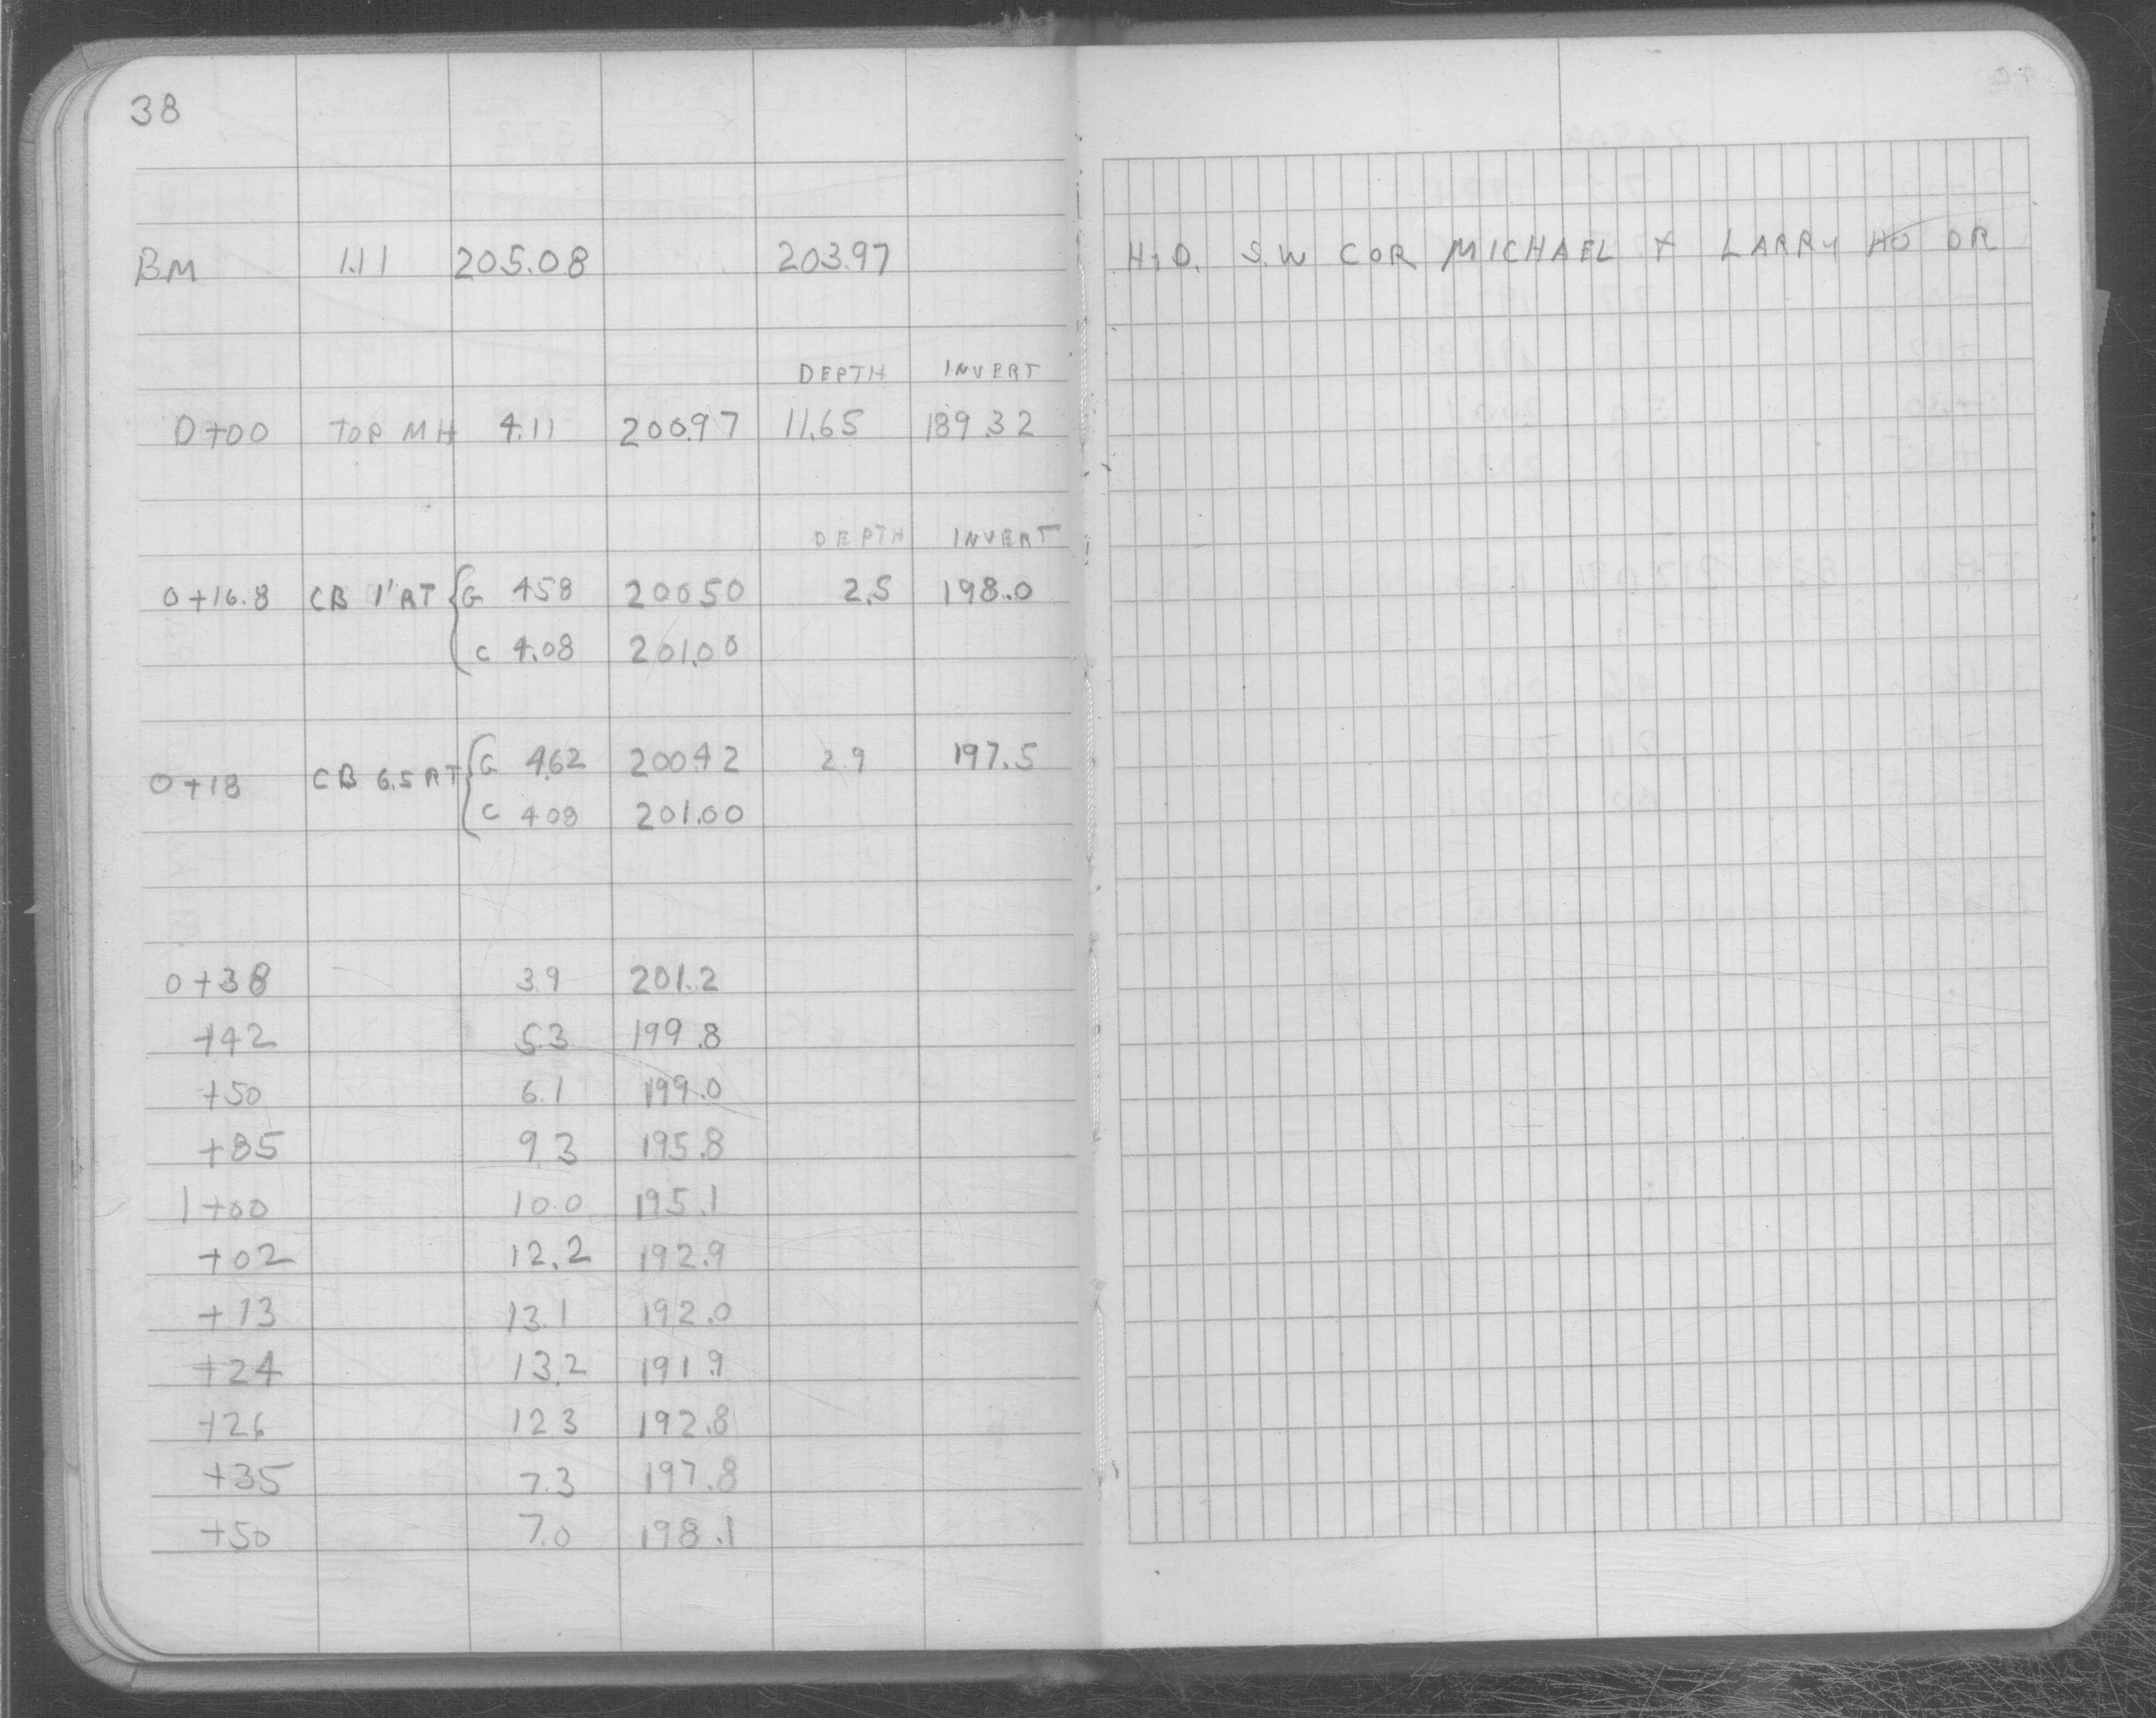 38
BM 1.11 205.08 203.97 HYD. S.W COR MICHAEL & LARRY HO DR
DEPTH INVERT
0+00 TOP MH 4.11 200.97 11.65 189.32
DEPTH INVERT
0+16.8 CB 1' RT { G 4.58 200.50 2.5 198.0
C 4.08 201.00
0+18 CB 6.5 RT { G 4.62 200.42 2.9 197.5
C 4.08 201.00
0+38 3.9 201.2
+42 5.3 199.8
+50 6.1 199.0
+85 9.3 195.8
1+00 10.0 195.1
+02 12.2 192.9
+13 13.1 192.0
+24 13.2 191.9
+26 12.3 192.8
+35 7.3 197.8
+50 7.0 198.1